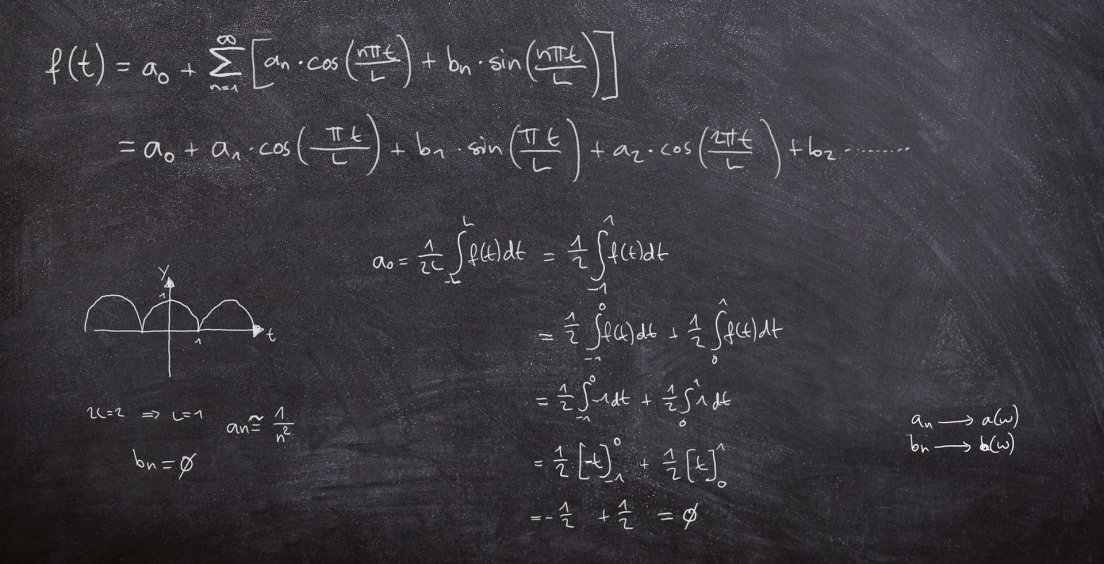 f(t) = a₀ + ∑_{n=1}^{∞} [aₙ · cos(nπt/L) + bₙ · sin(nπt/L)]
= a₀ + a₁ · cos(πt/L) + b₁ · sin(πt/L) + a₂ · cos(2πt/L) + b₂ ........
a₀ = 1/2L ∫_{-L}^{L} f(t)dt = 1/2 ∫_{-1}^{1} f(t)dt
= 1/2 ∫_{-1}^{0} f(t)dt + 1/2 ∫_{0}^{1} f(t)dt
= 1/2 ∫_{-1}^{0} -1dt + 1/2 ∫_{0}^{1} 1dt
= 1/2 [-t]_{-1}^{0} + 1/2 [t]_{0}^{1}
= -1/2 + 1/2 = ∅
y
1
1
t
2L=2 ⇒ L=1
aₙ ≅ 1/n²
bₙ = ∅
aₙ → a(ω)
bₙ → b(ω)